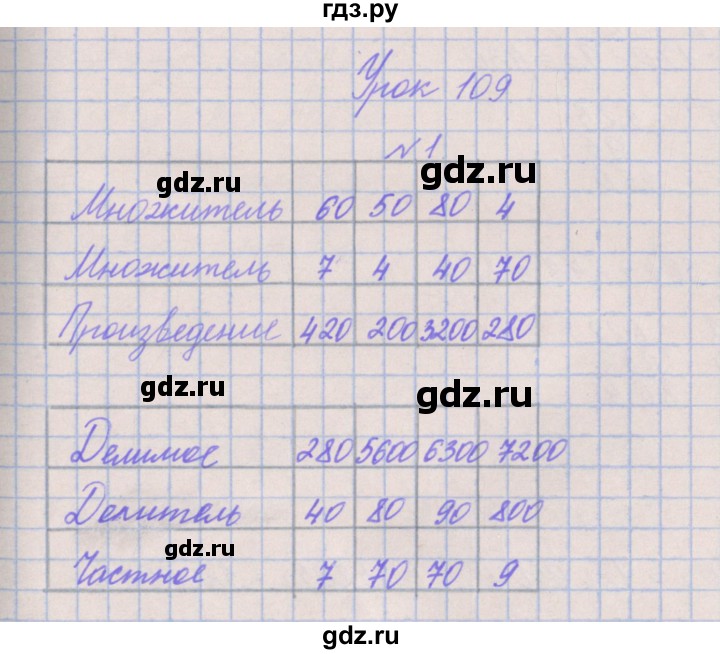 гдз.ру
Урок 109
№1
gdz.ru
gdz.ru
Множитель 60 50 80 4
Множитель 7 4 40 70
Произведение 420 200 3200 280
gdz.ru
gdz.ru
Делимое 280 5600 6300 7200
Делитель 40 80 90 800
gdz.ru
Частное 7 70 70 9
gdz.ru